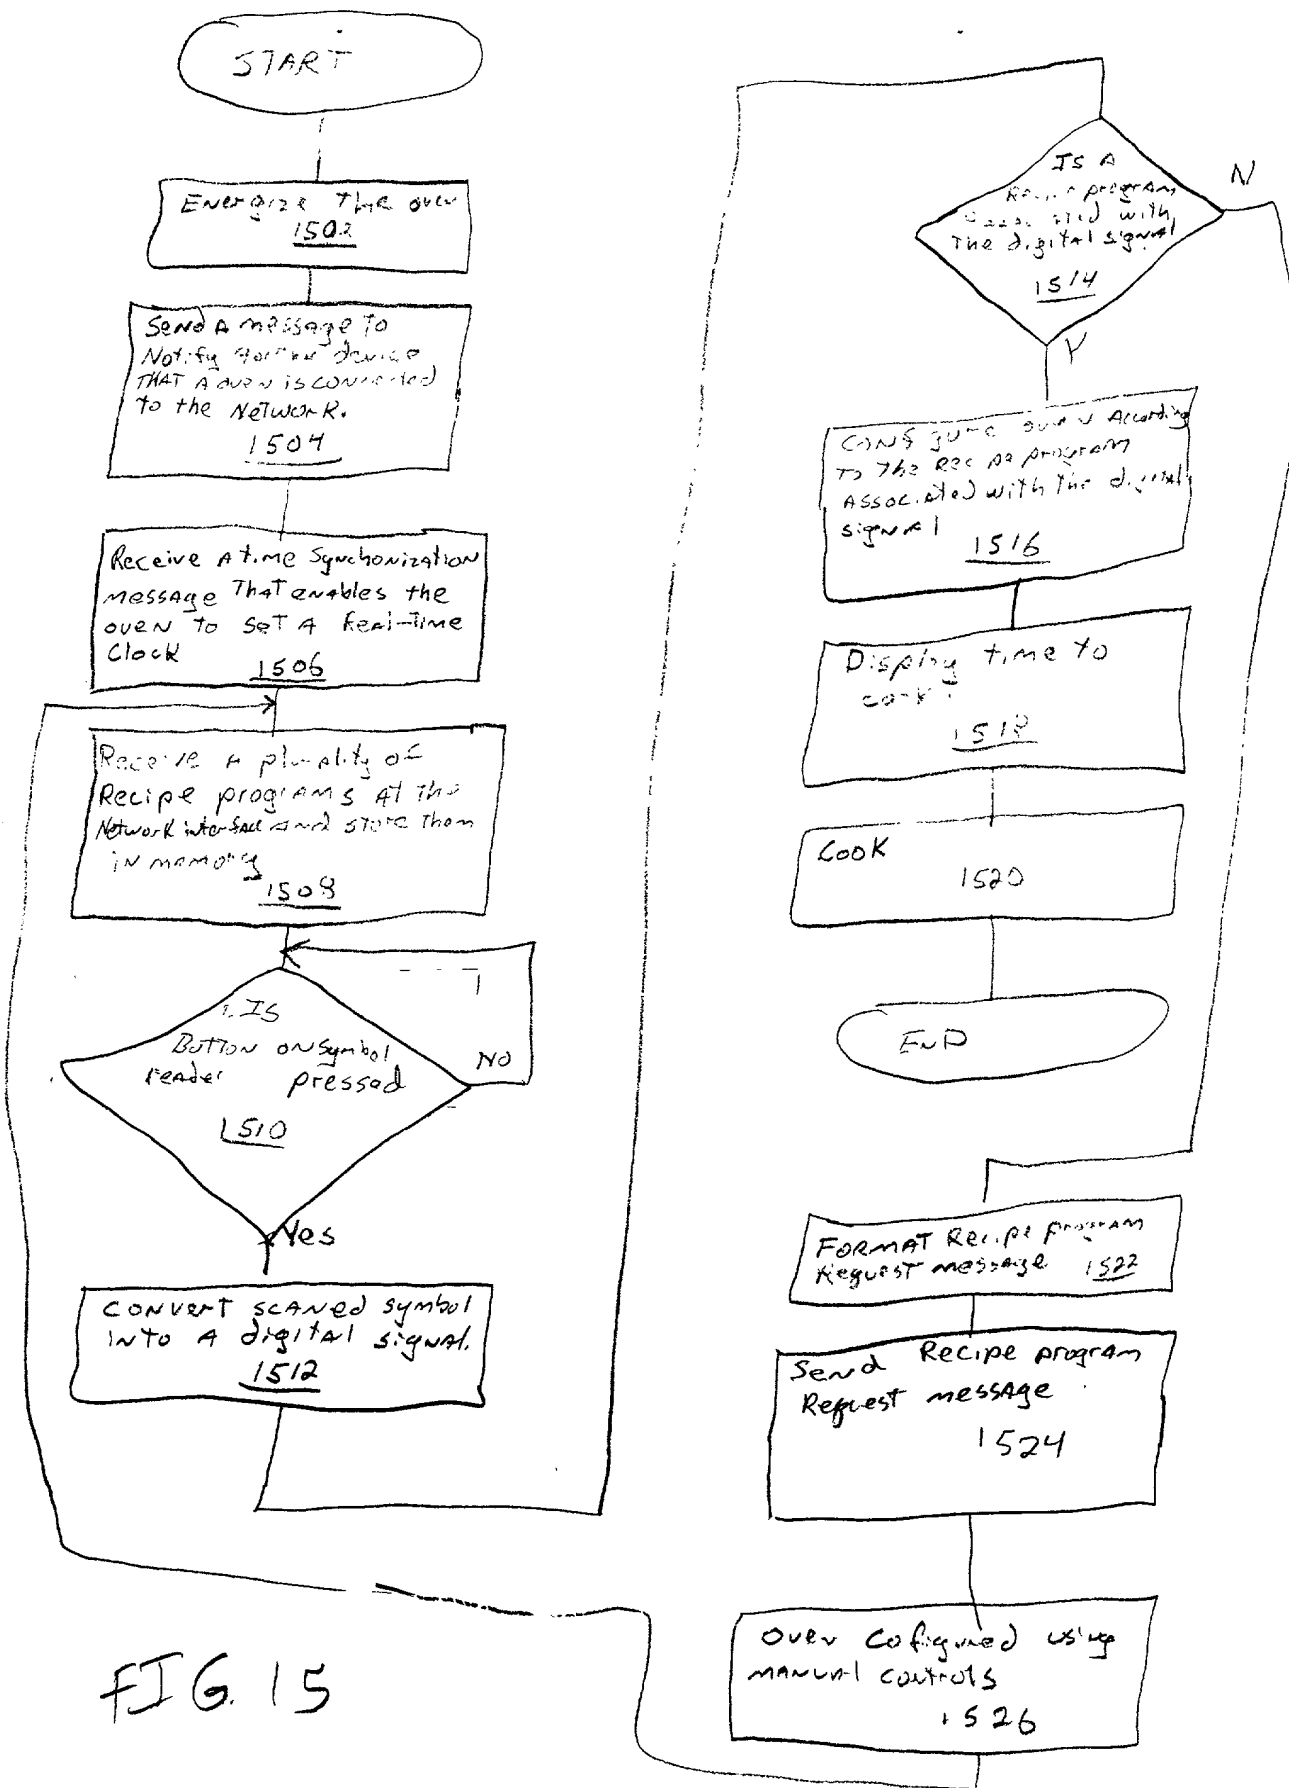 START
Energize the oven
1502
Send A message To
Notify device
THAT A oven is connected
to the Network.
1504
Receive A time Synchonization
message That enables the
oven to set A Real-Time
Clock
1506
Receive A plurality of
Recipe programs At the
Network interface And store them
in memory
1508
Is
Button on symbol
reader pressed
NO
1510
Yes
CONVERT SCANED symbol
INTO A digital signal.
1512
Is A
Recipe program
with
The digital signal
1514
N
Y
Configure oven According
To The Recipe program
Associated with the digital
signal
1516
Display time to
cook.
1518
Cook
1520
END
FORMAT Recipe program
Request message 1522
Send Recipe program
Request message
1524
Oven Cofigured using
MANUAL controls
1526
FIG. 15